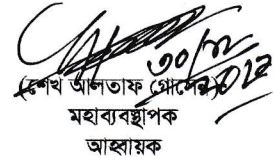 ৩০/১২/২০১২
(শেখ আলতাফ হোসেন)
মহাব্যবস্থাপক
আহবায়ক